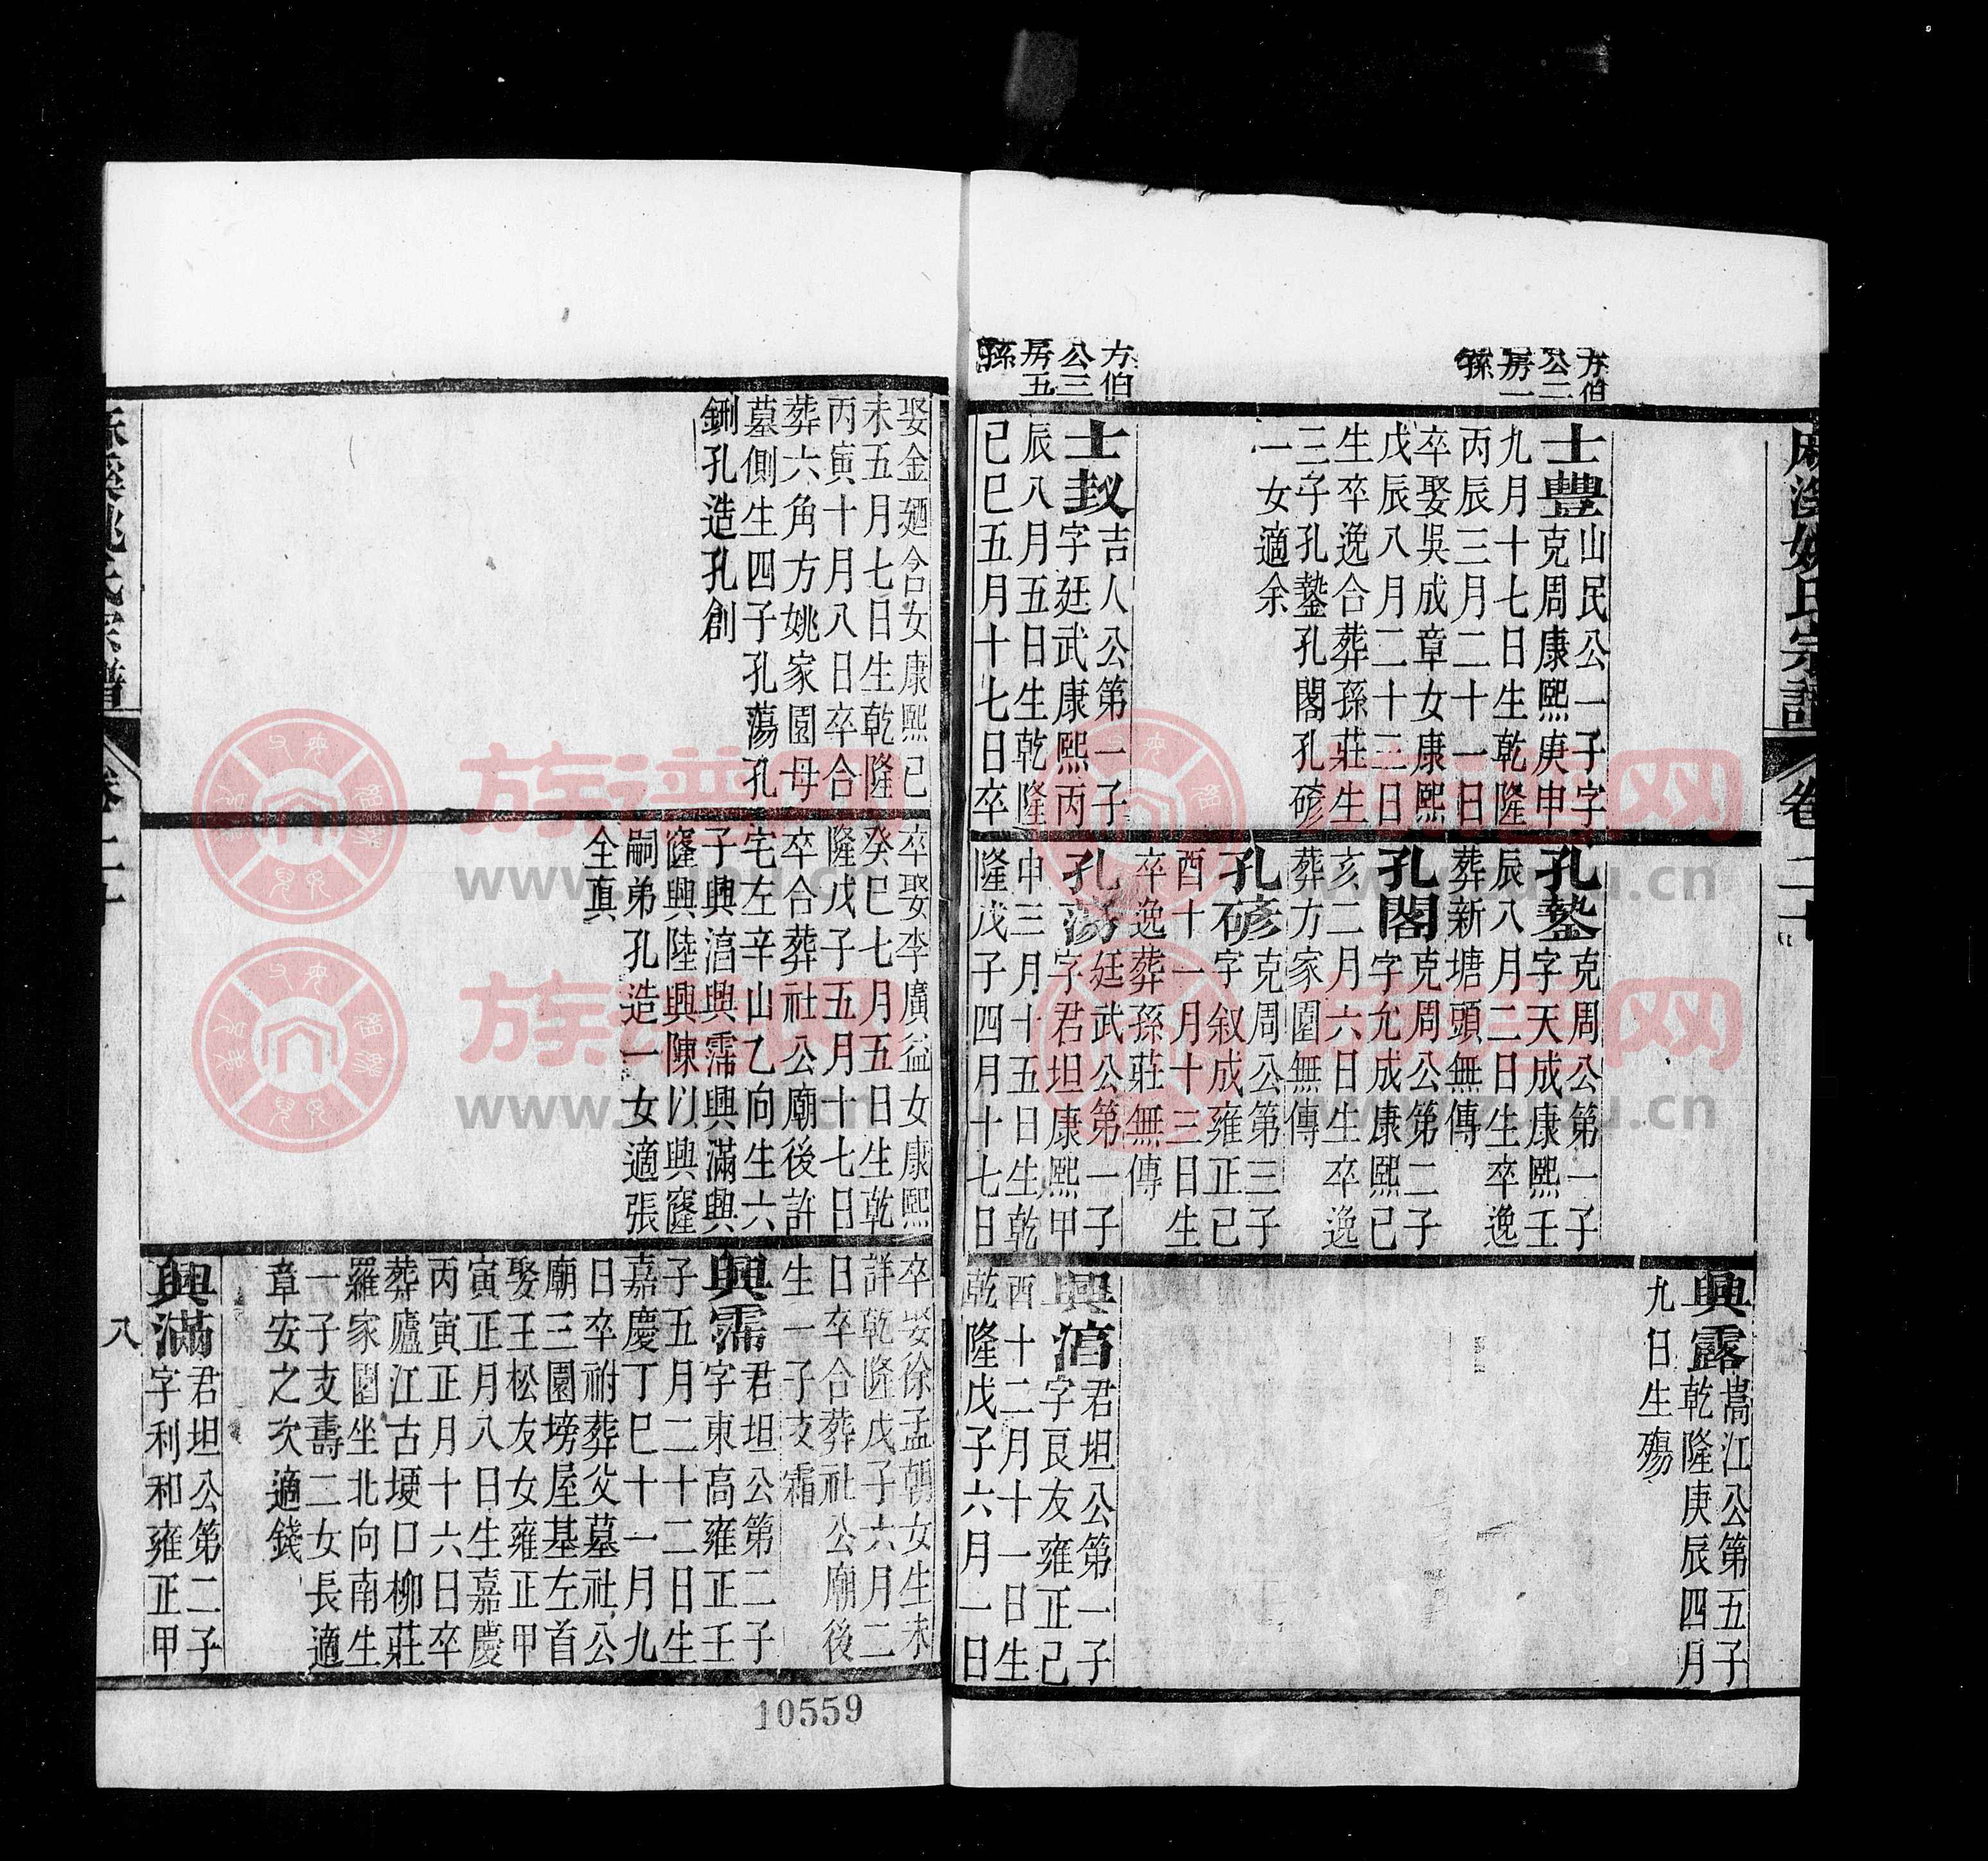 麻溪姚氏宗譜 卷二十
方伯
公二
房一
孫
士豐山民公一子字
克周康熙庚申
九月十七日生乾隆
丙辰三月二十一日
卒娶吳成章女康熙
戊辰八月二十三日
生卒逸合葬孫莊生
三子孔鏊孔閣孔䃢
一女適余
方伯
公三
房五
孫
士㪯吉人公第一子
字廷武康熙丙
辰八月五日生乾隆
己巳五月十七日卒
孔鏊克周公第一子
字天成康熙壬
辰八月二日生卒逸
葬新塘頭無傳
孔閣克周公第二子
字允成康熙己
亥二月六日生卒逸
葬方家園無傳
孔䃢克周公第三子
字叙成雍正己
酉十一月十三日生
卒逸葬孫莊無傳
孔蕩廷武公第一子
字君坦康熙甲
申三月十五日生乾
隆戊子四月十七日
興露暠江公第五子
乾隆庚辰四月
九日生殤
興湻君坦公第一子
字艮友雍正己
酉十二月十一日生
乾隆戊子六月一日
娶金廼含女康熙己
未五月七日生乾隆
丙寅十月八日卒合
葬六角方姚家園母
墓側生四子孔蕩孔
鉶孔造孔創
卒娶李廣益女康熙
癸巳七月五日生乾
隆戊子五月十七日
卒合葬社公廟後許
宅左辛山乙向生六
子興湻興霈興滿興
窿興陸興陳以興窿
嗣弟孔造一女適張
全真
卒娶徐孟朝女生未
詳乾隆戊子六月二
日卒合葬社公廟後
生一子支霜
興霈君坦公第二子
字東高雍正壬
子五月二十二日生
嘉慶丁巳十一月九
日卒祔葬父墓社公
廟三園塝屋基左首
娶王松友女雍正甲
寅正月八日生嘉慶
丙寅正月十六日卒
葬廬江古埂口柳莊
羅家園坐北向南生
一子支壽二女長適
章安之次適錢
興滿君坦公第二子
字利和雍正甲
麻溪姚氏宗譜 卷二十
八
10559
族譜网
www.zupu.cn
族譜网
www.zupu.cn
族譜网
www.zupu.cn
族譜网
www.zupu.cn